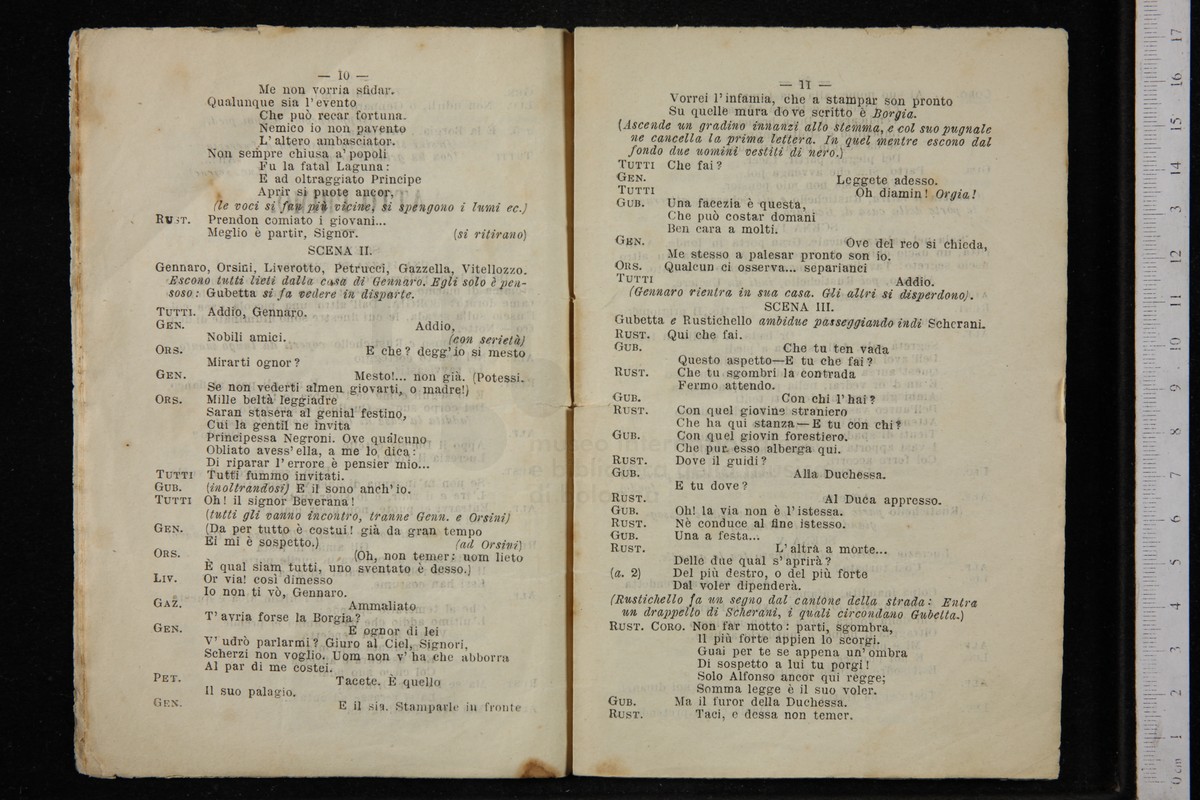 — 10 —
Me non vorria sfidar.
Qualunque sia l'evento
Che può recar fortuna.
Nemico io non pavento
L'altero ambasciator.
Non sempre chiusa a' popoli
Fu la fatal Laguna:
E ad oltraggiato Principe
Aprir si puote ancor.
(le voci si fan più vicine, si spengono i lumi ec.)
RUST. Prendon comiato i giovani...
Meglio è partir, Signor. (si ritirano)
SCENA II.
Gennaro, Orsini, Liverotto, Petrucci, Gazzella, Vitellozzo.
Escono tutti lieti dalla casa di Gennaro. Egli solo è pen-
soso: Gubetta si fa vedere in disparte.
TUTTI. Addio, Gennaro.
GEN. Addio,
Nobili amici. (con serietà)
ORS. E che? degg'io si mesto
Mirarti ognor?
GEN. Mesto!... non già. (Potessi.
Se non vederti almen giovarti, o madre!)
ORS. Mille beltà leggiadre
Saran stasera al genial festino,
Cui la gentil ne invita
Principessa Negroni. Ove qualcuno
Obliato avess'ella, a me lo dica:
Di riparar l'errore è pensier mio...
TUTTI Tutti fummo invitati.
GUB. (inoltrandosi) E il sono anch'io.
TUTTI Oh! il signor Beverana!
(tutti gli vanno incontro, tranne Genn. e Orsini)
GEN. (Da per tutto è costui! già da gran tempo
Ei mi è sospetto.) (ad Orsini)
ORS. (Oh, non temer: uom lieto
È qual siam tutti, uno sventato è desso.)
LIV. Or via! così dimesso
Io non ti vò, Gennaro.
GAZ. Ammaliato
T'avria forse la Borgia?
GEN. E ognor di lei
V'udrò parlarmi? Giuro al Ciel, Signori,
Scherzi non voglio. Uom non v'ha che abborra
Al par di me costei.
PET. Tacete. È quello
Il suo palagio.
GEN. E il sia. Stamparle in fronte
— 11 —
Vorrei l'infamia, che a stampar son pronto
Su quelle mura dove scritto è Borgia.
(Ascende un gradino innanzi allo stemma, e col suo pugnale
ne cancella la prima lettera. In quel mentre escono dal
fondo due uomini vestiti di nero.)
TUTTI Che fai?
GEN. Leggete adesso.
TUTTI Oh diamin! Orgia!
GUB. Una facezia è questa,
Che può costar domani
Ben cara a molti.
GEN. Ove del reo si chieda,
Me stesso a palesar pronto son io.
ORS. Qualcun ci osserva... separianci
TUTTI Addio.
(Gennaro rientra in sua casa. Gli altri si disperdono).
SCENA III.
Gubetta e Rustichello ambidue passeggiando indi Scherani.
RUST. Qui che fai.
GUB. Che tu ten vada
Questo aspetto—E tu che fai?
RUST. Che tu sgombri la contrada
Fermo attendo.
GUB. Con chi l'hai?
RUST. Con quel giovine straniero
Che ha qui stanza—E tu con chi?
GUB. Con quel giovin forestiero.
Che pur esso alberga qui.
RUST. Dove il guidi?
GUB. Alla Duchessa.
E tu dove?
RUST. Al Duca appresso.
GUB. Oh! la via non è l'istessa.
RUST. Nè conduce al fine istesso.
GUB. Una a festa...
RUST. L'altra a morte...
Delle due qual s'aprirà?
(a. 2) Del più destro, o del più forte
Dal voler dipenderà.
(Rustichello fa un segno dal cantone della strada: Entra
un drappello di Scherani, i quali circondano Gubetta.)
RUST. CORO. Non far motto: parti, sgombra,
Il più forte appien lo scorgi.
Guai per te se appena un'ombra
Di sospetto a lui tu porgi!
Solo Alfonso ancor qui regge;
Somma legge è il suo voler.
GUB. Ma il furor della Duchessa.
RUST. Taci, e dessa non temer.